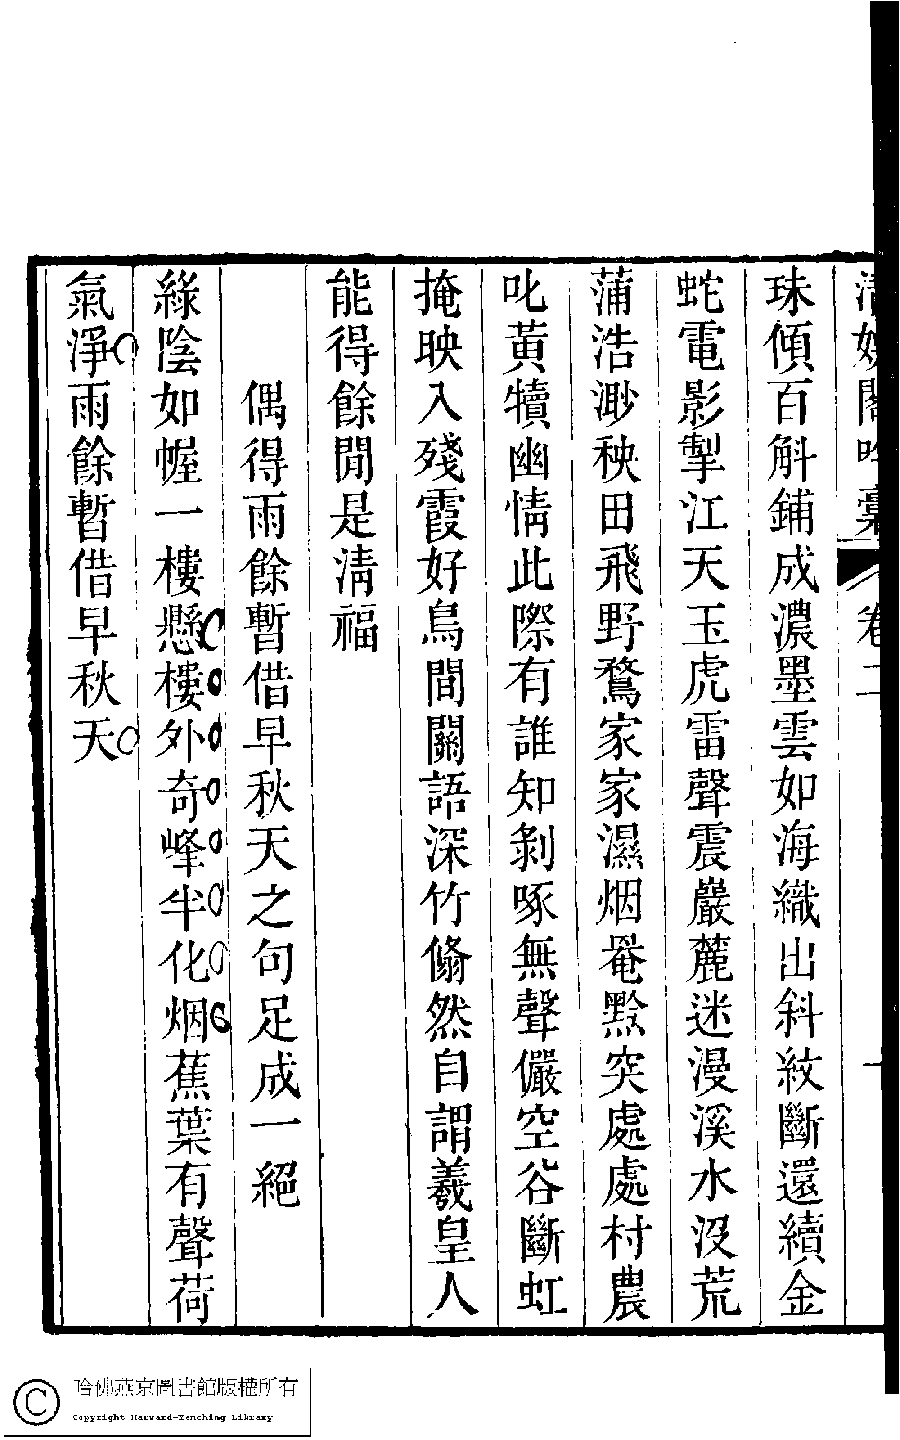 清娛閣吟稾 卷二
珠傾百斛鋪成濃墨雲如海織出斜紋斷還續金
蛇電影掣江天玉虎雷聲震巖麓迷漫溪水沒荒
蒲浩渺秧田飛野鶩家家濕烟罨黔突處處村農
叱黃犢幽情此際有誰知剝啄無聲儼空谷斷虹
掩映入殘霞好鳥間關語深竹翛然自謂羲皇人
能得餘閒是淸福
偶得雨餘暫借早秋天之句足成一絕
綠陰如幄一樓懸樓外奇峰半化烟蕉葉有聲荷
氣淨雨餘暫借早秋天
哈佛燕京圖書館版權所有
Copyright Harvard-Yenching Library